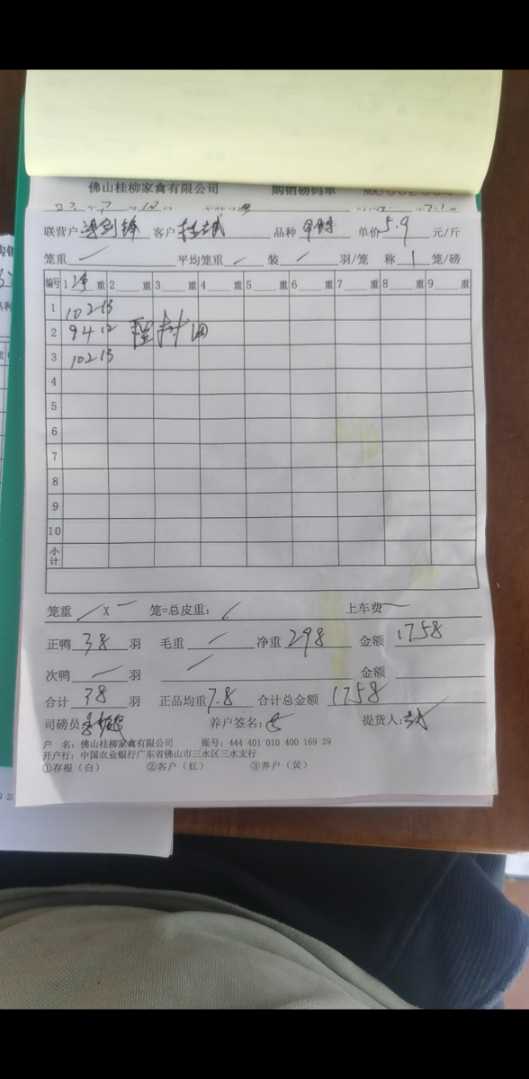 佛山桂柳家禽有限公司 购销磅码单
联营户 客户 品种 单价 5.9 元/斤
笼重 平均笼重 装 羽/笼 称 1 笼/磅
编号 1 净 重 2 重 3 重 4 重 5 重 6 重 7 重 8 重 9 重
1 102 13
2 94 12
3 102 13
4
5
6
7
8
9
10
小计
笼重 X 笼=总皮重: 上车费
正鸭 38 羽 毛重 净重 298 金额 1758
次鸭 羽 金额
合计 38 羽 正品均重 7.8 合计总金额 1758
司磅员 养户签名: 提货人:
户 名: 佛山桂柳家禽有限公司 账号: 444 401 010 400 169 29
开户行: 中国农业银行广东省佛山市三水区三水支行
①存根(白) ②客户(红) ③养户(黄)